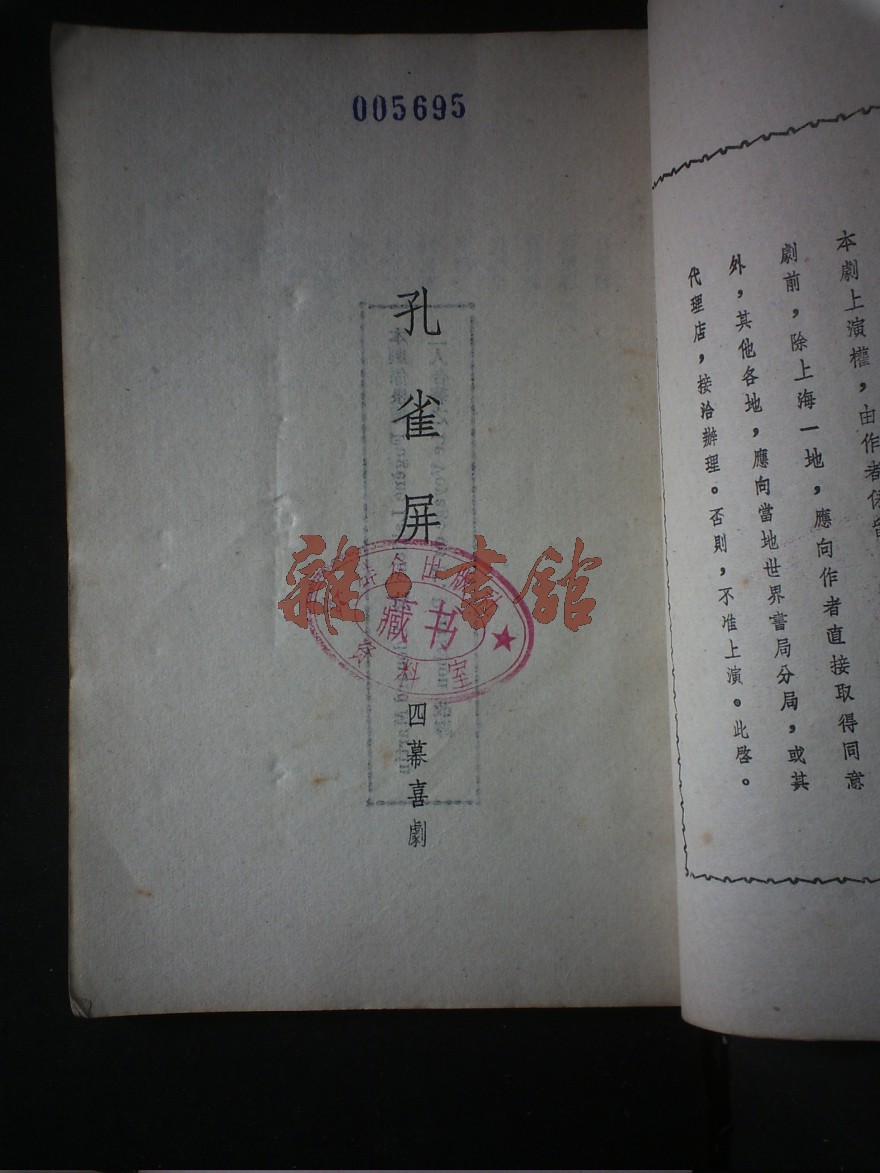 005695
孔雀屏
四幕喜劇
雜·書館
出版
藏书
资料室
本劇上演權，由作者保留
劇前，除上海一地，應向作者直接取得同意
外，其他各地，應向當地世界書局分局，或其
代理店，接洽辦理。否則，不准上演。此啓。